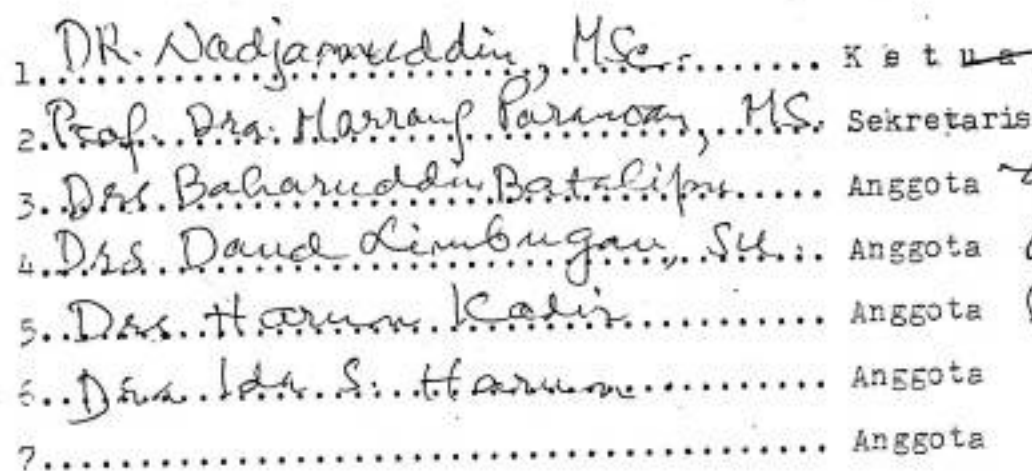 1. DR. Nadjamuddin, MSc. K e t u a
2. Prof. Drs. Marrang Paranoan, MS. Sekretaris
3. Drs. Baharuddin Batalipu Anggota
4. Drs. Daud Limbugau, SU. Anggota
5. Drs. Harun Kadir Anggota
6. Dra. Ida S. Harun Anggota
7. Anggota